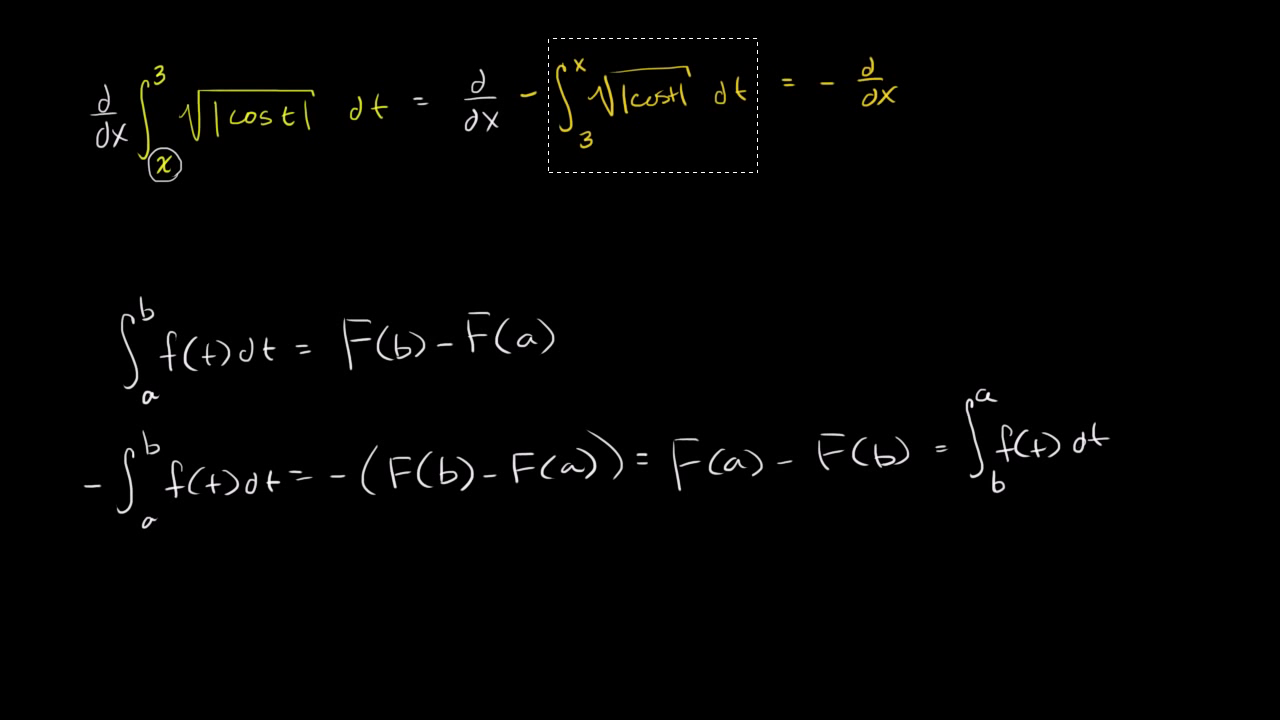 d/dx ∫_x^3 √|cos t| dt = d/dx - ∫_3^x √|cos t| dt = - d/dx
∫_a^b f(t) dt = F(b) - F(a)
- ∫_a^b f(t) dt = - (F(b) - F(a)) = F(a) - F(b) = ∫_b^a f(t) dt